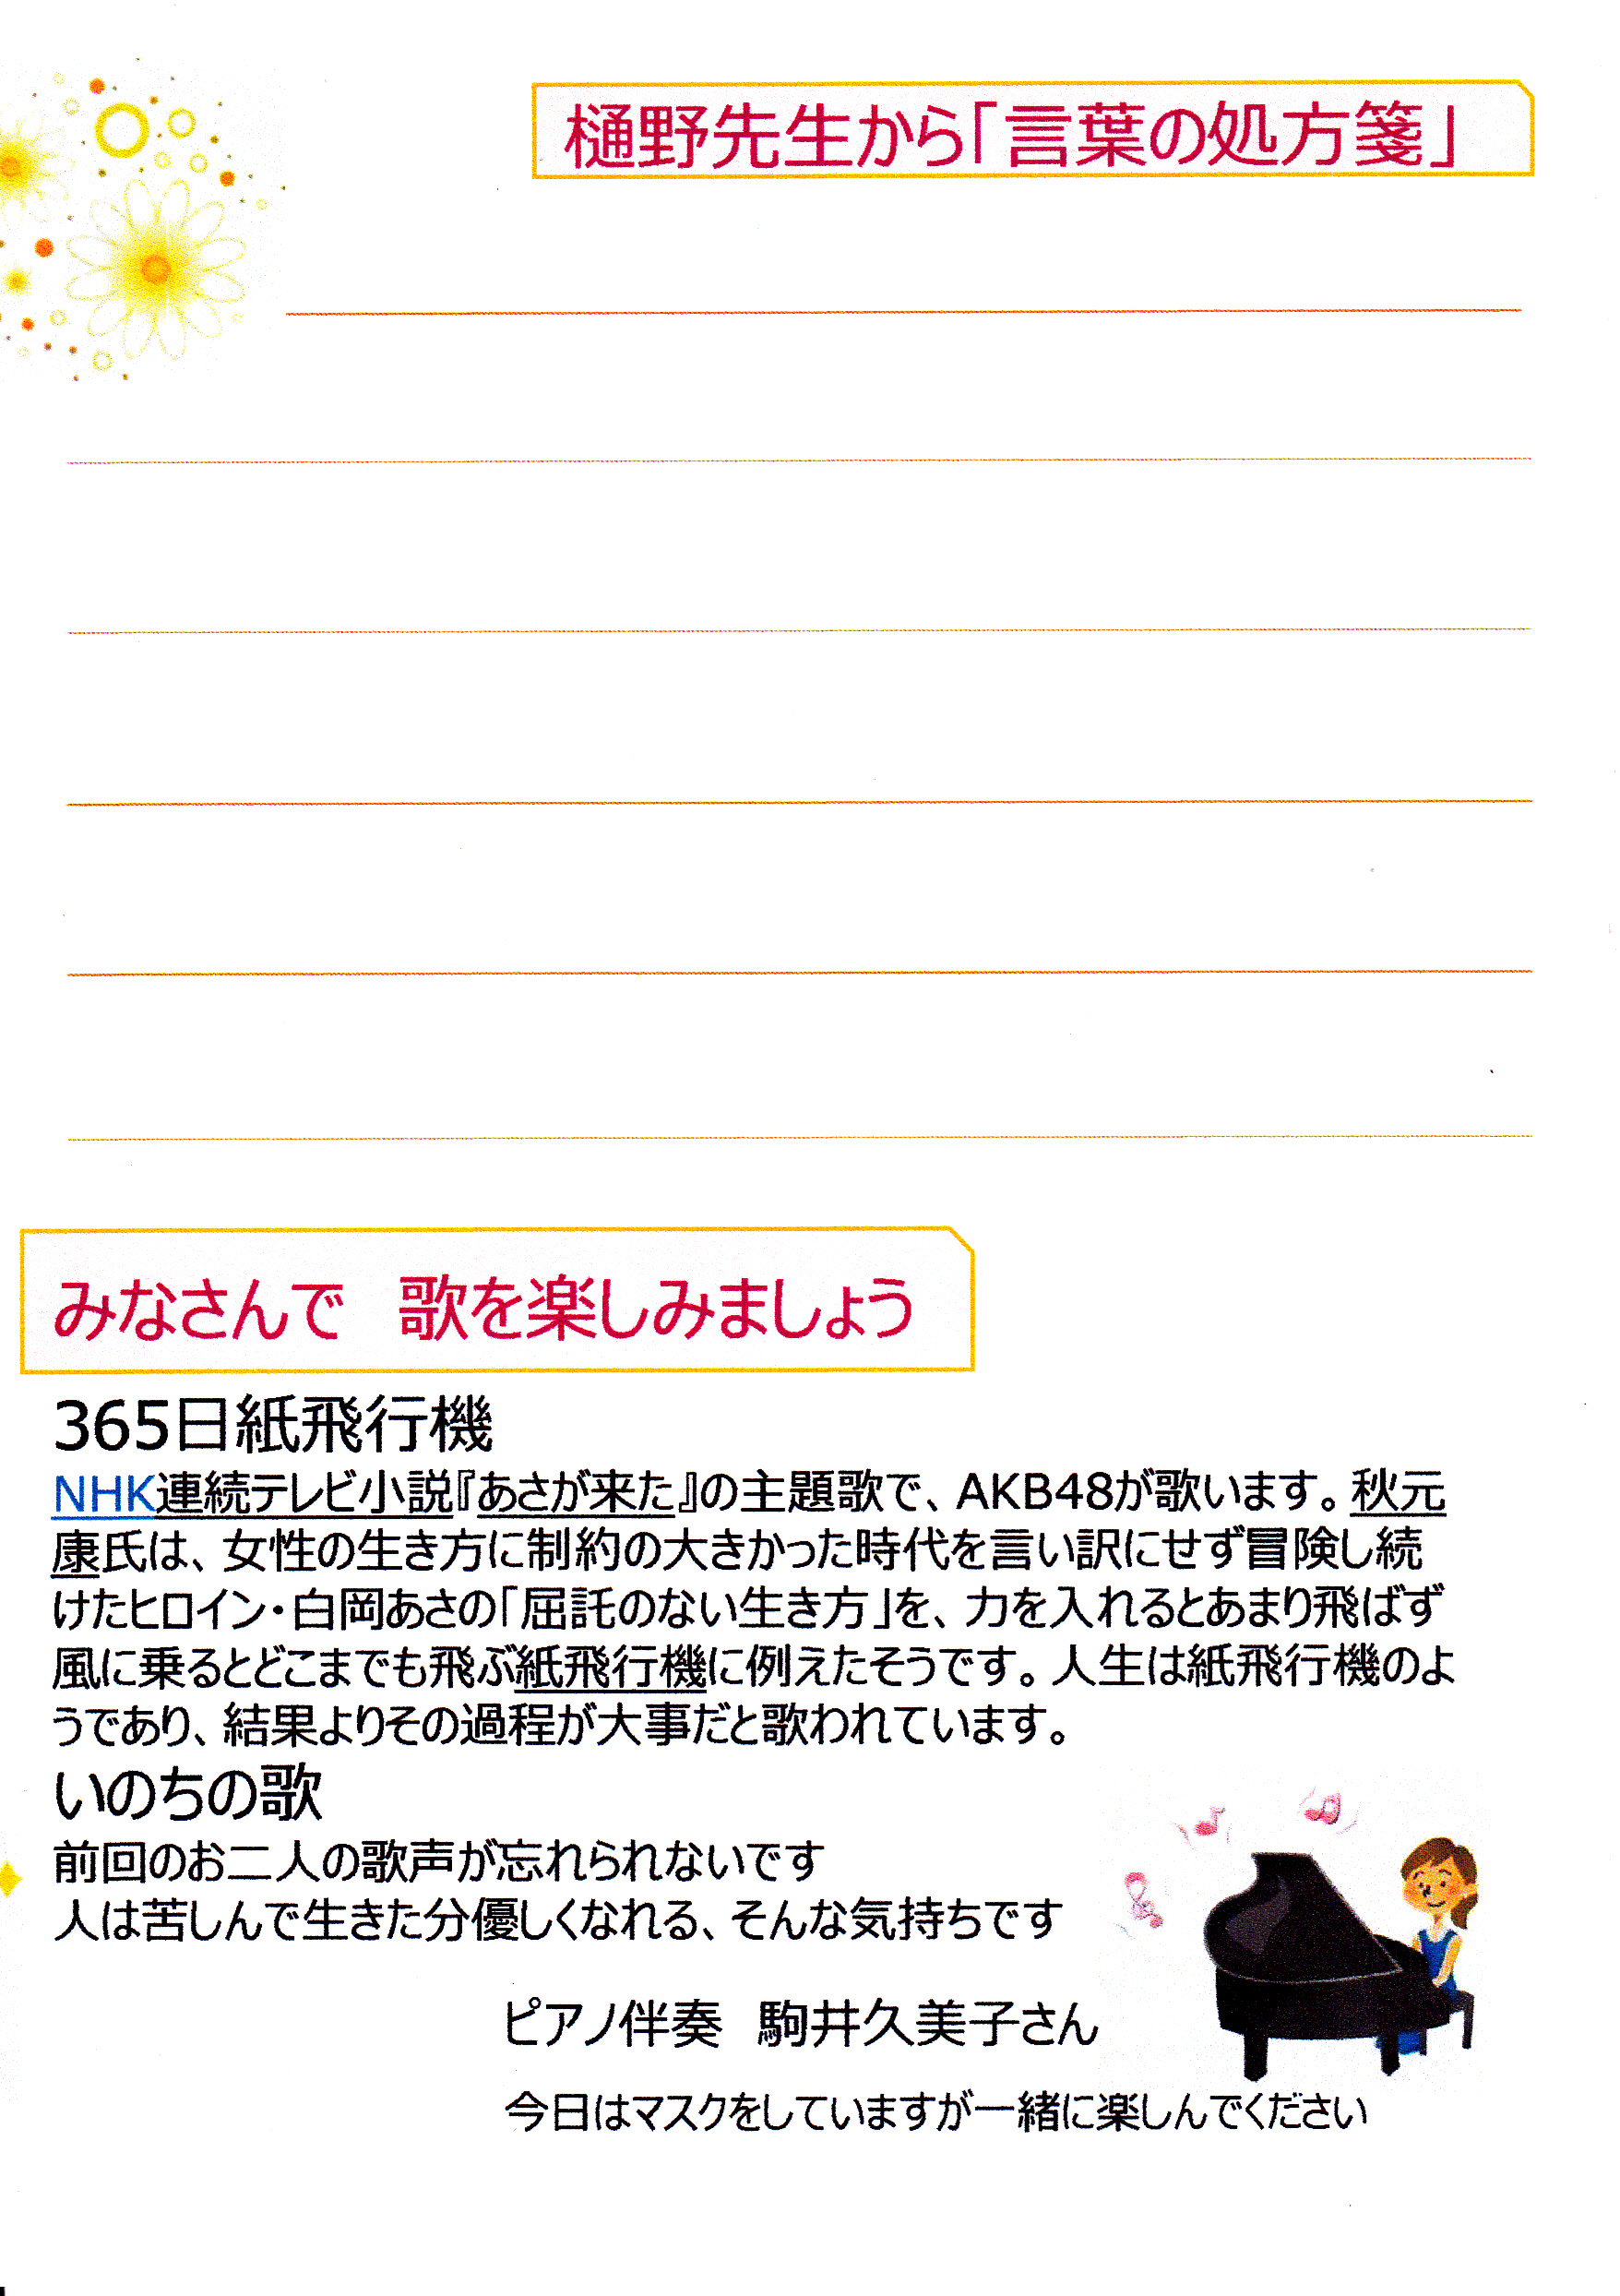 樋野先生から「言葉の処方箋」
みなさんで　歌を楽しみましょう
365日紙飛行機
NHK連続テレビ小説『あさが来た』の主題歌で、AKB48が歌います。秋元
康氏は、女性の生き方に制約の大きかった時代を言い訳にせず冒険し続
けたヒロイン・白岡あさの「屈託のない生き方」を、力を入れるとあまり飛ばず
風に乗るとどこまでも飛ぶ紙飛行機に例えたそうです。人生は紙飛行機のよ
うであり、結果よりその過程が大事だと歌われています。
いのちの歌
前回のお二人の歌声が忘れられないです
人は苦しんで生きた分優しくなれる、そんな気持ちです
ピアノ伴奏　駒井久美子さん
今日はマスクをしていますが一緒に楽しんでください